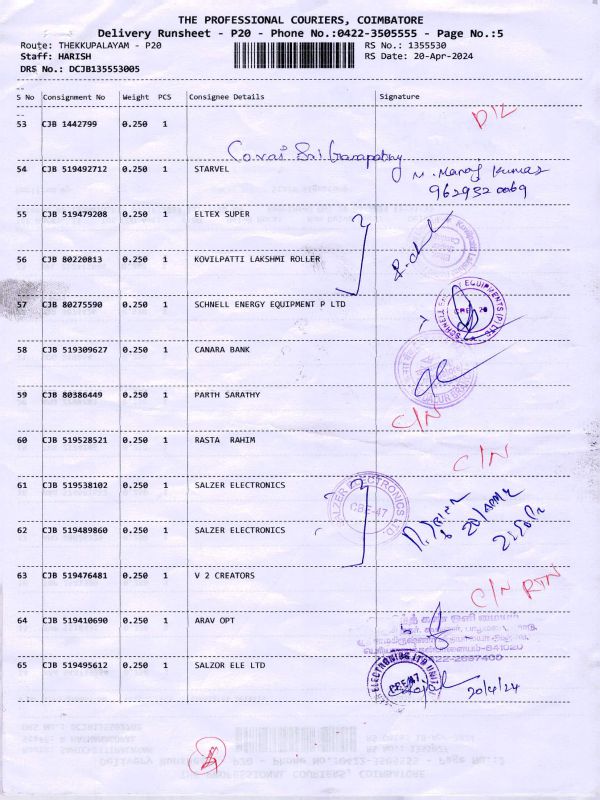 THE PROFESSIONAL COURIERS, COIMBATORE
Delivery Runsheet - P20 - Phone No.:0422-3505555 - Page No.:5
Route: THEKKUPALAYAM - P20 RS No.: 1355530
Staff: HARISH RS Date: 20-Apr-2024
DRS No.: DCJB135553005
S No Consignment No Weight PCS Consignee Details Signature
53 CJB 1442799 0.250 1 D/L
Covai Sri Ganapathy
54 CJB 519492712 0.250 1 STARVEL M. Manoj Kumar
9629320069
55 CJB 519479208 0.250 1 ELTEX SUPER
56 CJB 80220813 0.250 1 KOVILPATTI LAKSHMI ROLLER
57 CJB 80275590 0.250 1 SCHNELL ENERGY EQUIPMENT P LTD
58 CJB 519309627 0.250 1 CANARA BANK
59 CJB 80386449 0.250 1 PARTH SARATHY C/N
60 CJB 519528521 0.250 1 RASTA RAHIM C/N
61 CJB 519538102 0.250 1 SALZER ELECTRONICS
SALZER ELECTRONICS LTD. CBE-47
62 CJB 519489860 0.250 1 SALZER ELECTRONICS
63 CJB 519476481 0.250 1 V 2 CREATORS C/N RTN
64 CJB 519410690 0.250 1 ARAV OPT
65 CJB 519495612 0.250 1 SALZOR ELE LTD
ELECTRONICS LTD UNIT CBE-47
20/4/24